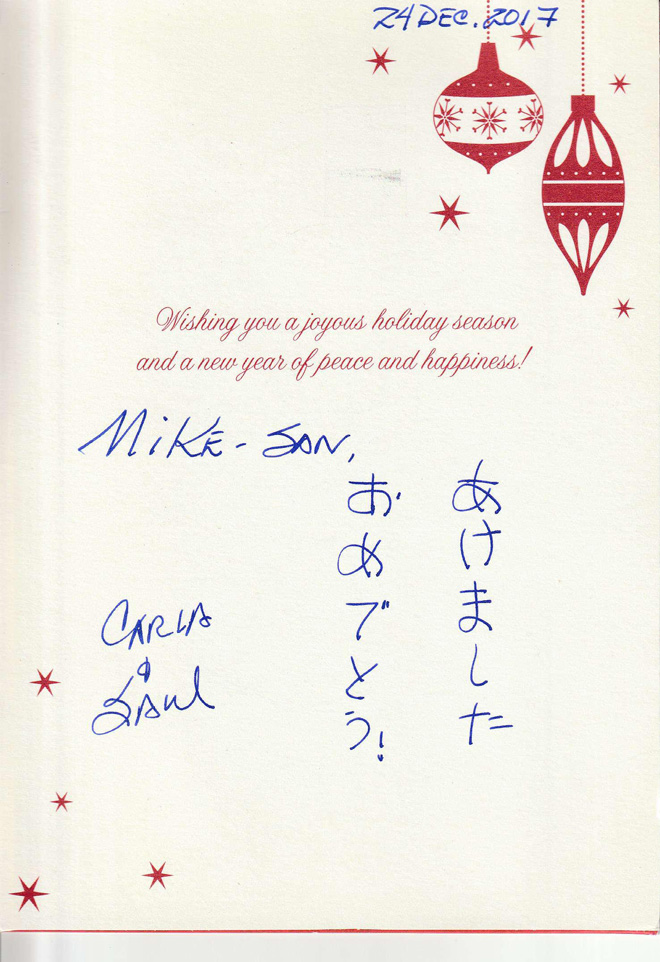 24 DEC. 2017
Wishing you a joyous holiday season
and a new year of peace and happiness!
MiKE-SAN,
あけました
おめでとう!
CARLA
&
SAUL